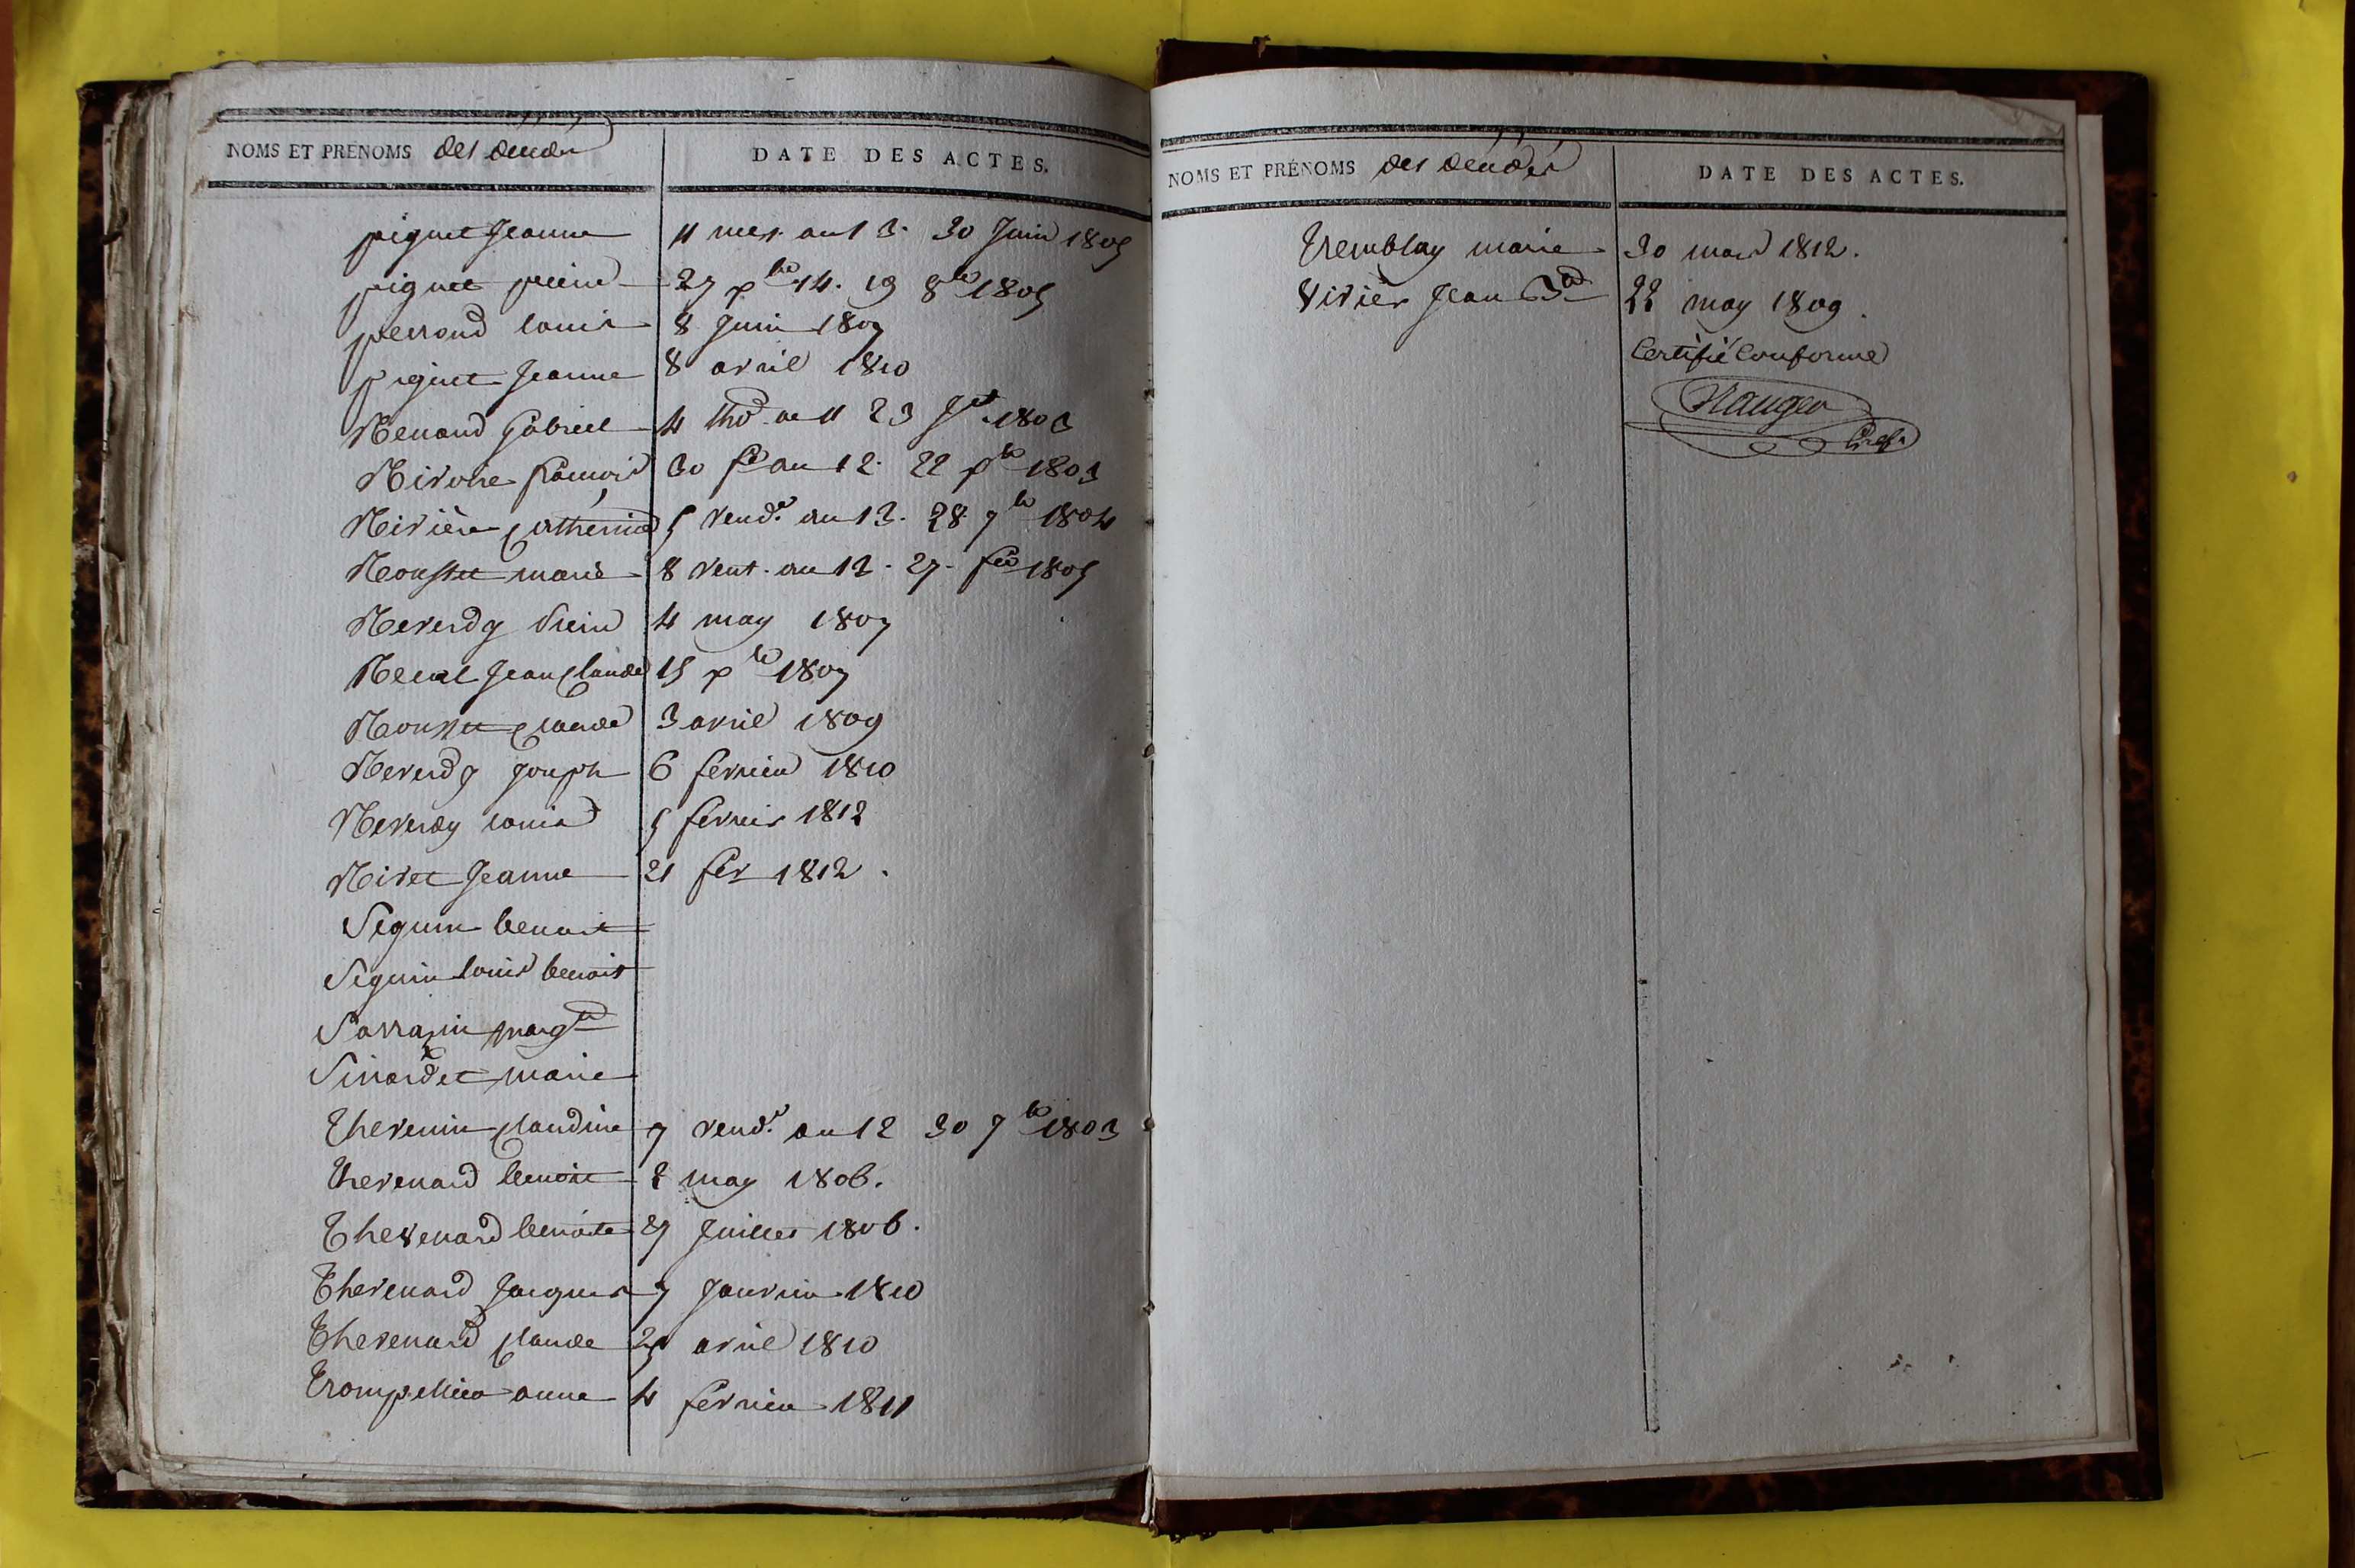 NOMS ET PRÉNOMS des décédés
DATE DES ACTES.
piguet Jeanne 11 mes. an 13. 30 Juin 1805
piguet pierre 27 14. 19 8bre 1805
perraud Louis 8 Juin 1807
piguet Jeanne 8 avril 1810
Renaud gabriel 4 thd. an 11 23 Jet. 1803
Rivoire francois 30 an 12. 22 1803
Rivière Catherine 5 vend.re an 13. 28 7bre 1804
Rousset marie 8 vent. an 13. 27. fév 1805
Reverdy Pierre 4 may 1807
Jean Claude 15 1807
Rousset Claude 3 avril 1809
Reverdy Joseph 6 fevrier 1810
Reverdy Louis 5 fevrier 1812
Rivet Jeanne 21 fév 1812.
Seguin benoit
Seguin Louis benoit
Sarrazin margte
Sinardet marie
Thevenin Claudine 7 vend.re an 12 30 7bre 1803
thevenard benoit 2 may 1806.
Thevenard benoite 27 Juillet 1806.
Thevenard Jacques 7 Janvier 1810
Thevenard Claude 25 avril 1810
anne 4 fevrier 1811
NOMS ET PRÉNOMS des décédés
DATE DES ACTES.
Tremblay marie 30 mars 1812.
Vivier Jean 22 may 1809.
Certifié Conforme